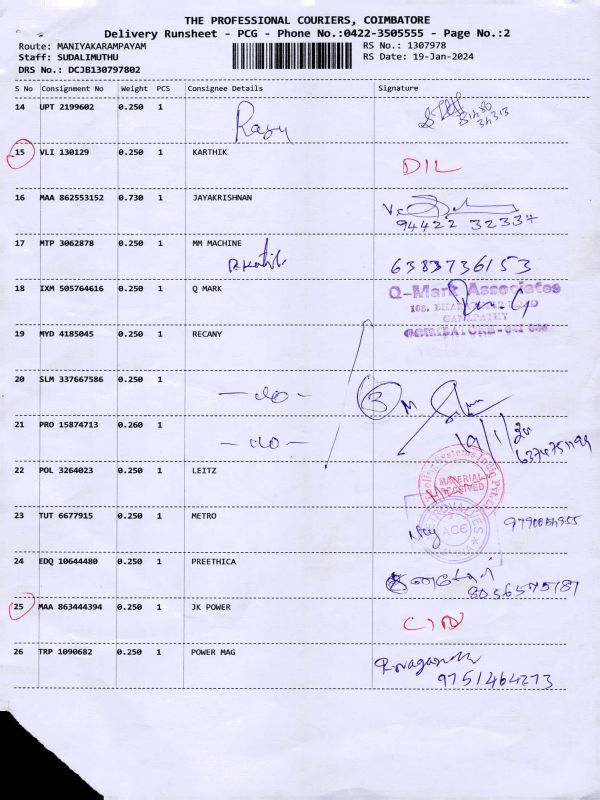 THE PROFESSIONAL COURIERS, COIMBATORE
Delivery Runsheet - PCG - Phone No.:0422-3505555 - Page No.:2
Route: MANIYAKARAMPAYAM RS No.: 1307978
Staff: SUDALIMUTHU RS Date: 19-Jan-2024
DRS No.: DCJB130797802
S No Consignment No Weight PCS Consignee Details Signature
14 UPT 2199602 0.250 1
Raju
15 VLI 130129 0.250 1 KARTHIK
DIL
16 MAA 862553152 0.730 1 JAYAKRISHNAN
94422 32334
17 MTP 3062878 0.250 1 MM MACHINE
6383736153
18 IXM 505764616 0.250 1 Q MARK
Q-Mark Associates
GANAPATHY
19 MYD 4185045 0.250 1 RECANY
20 SLM 337667586 0.250 1
-do-
3
21 PRO 15874713 0.260 1
-do-
19/1/24
22 POL 3264023 0.250 1 LEITZ
MATERIAL
RECEIVED
23 TUT 6677915 0.250 1 METRO
ACE
24 EDQ 10644480 0.250 1 PREETHICA
8056575187
25 MAA 863444394 0.250 1 JK POWER
26 TRP 1090682 0.250 1 POWER MAG
9751464273